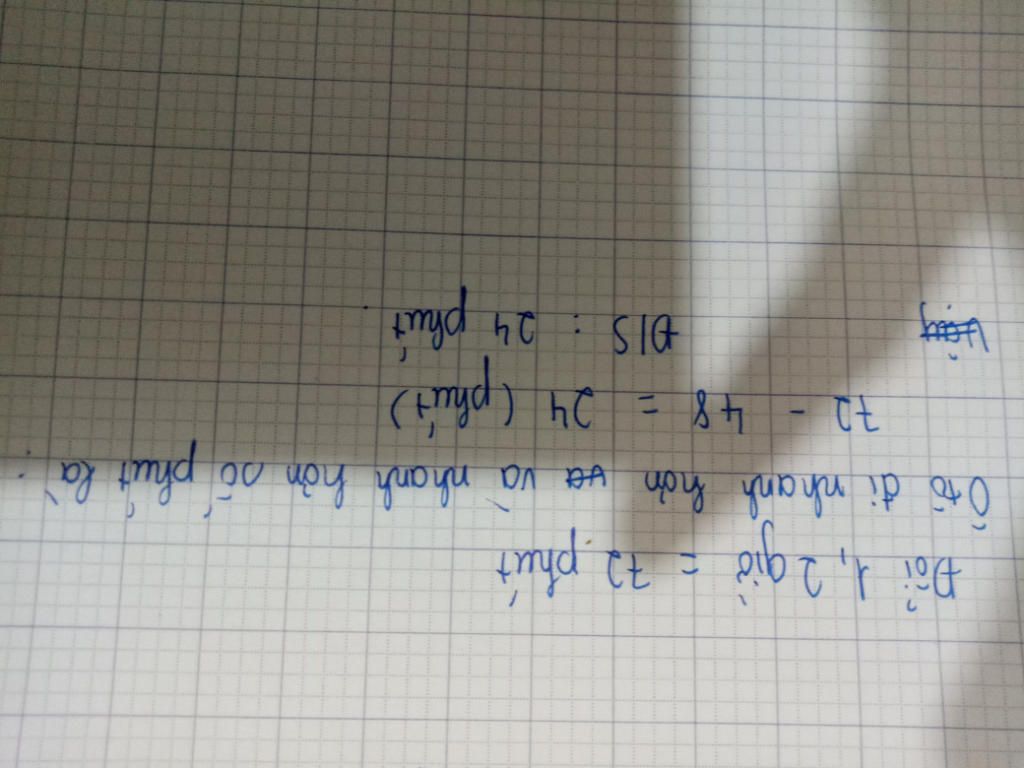 Đổi 1,2 giờ = 72 phút
Ô tô đi nhanh hơn và nhanh hơn số phút là :
72 - 48 = 24 (phút)
Đ/S : 24 phút